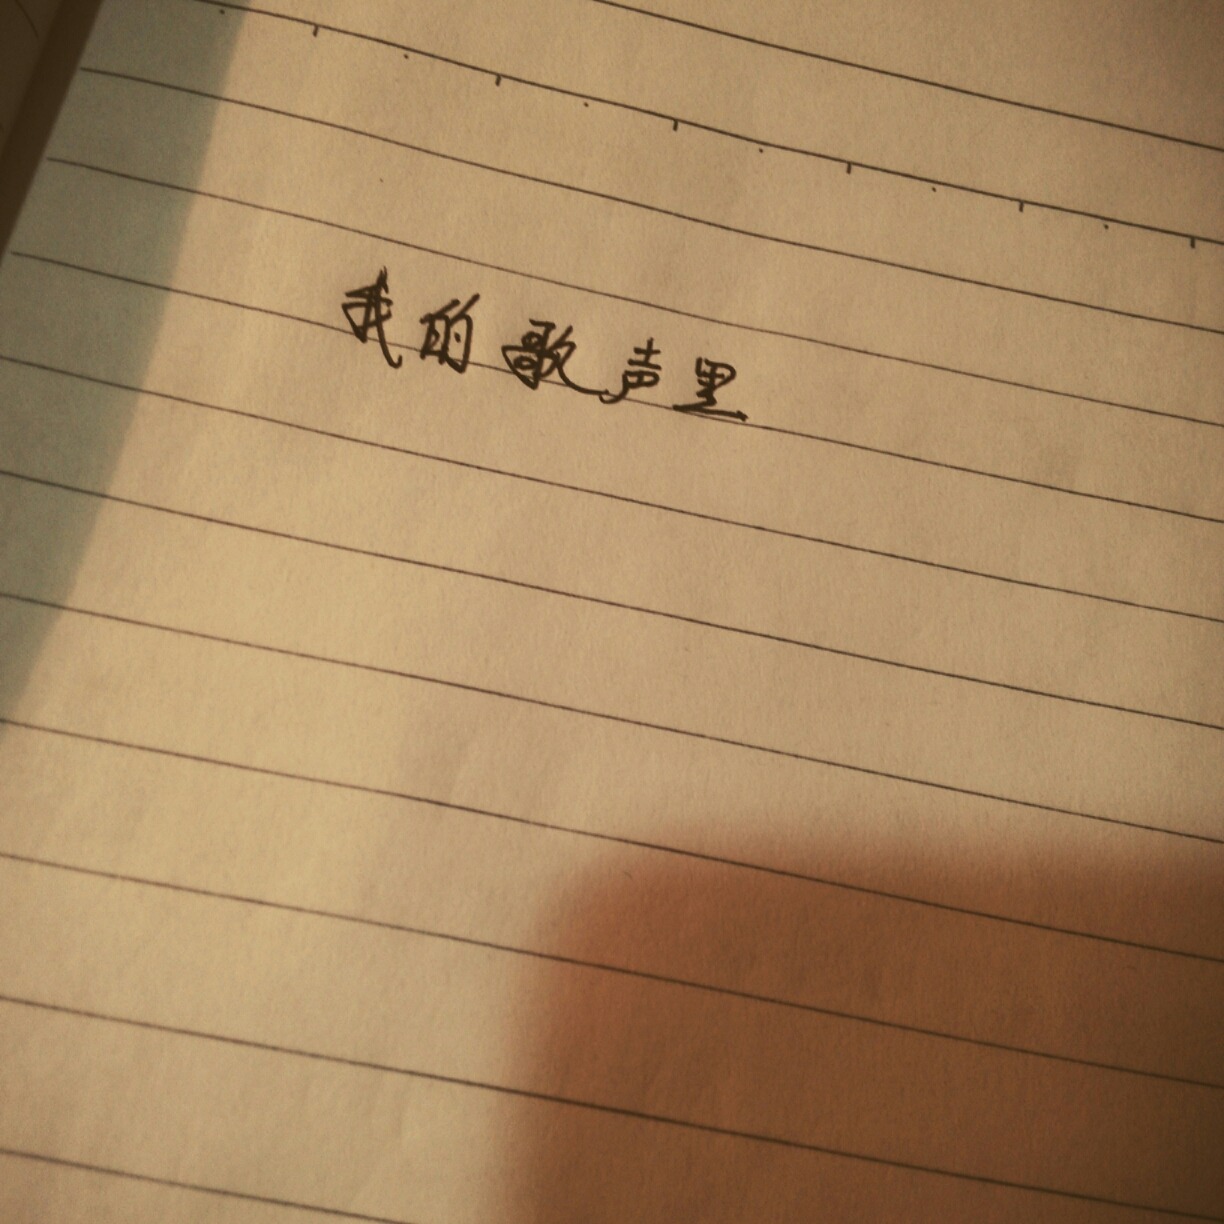 我的歌声里